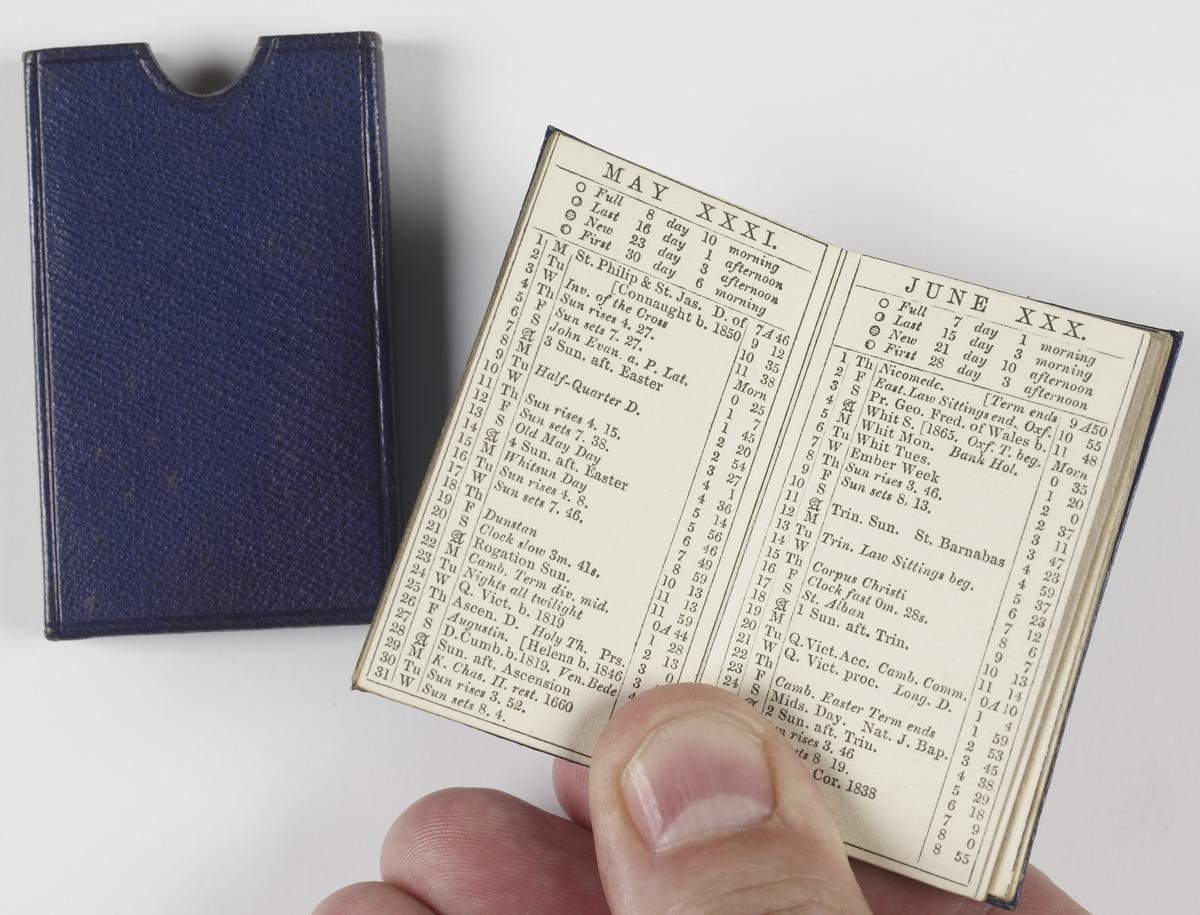 MAY XXXI.
Full 8 day 10 morning
Last 16 day 1 afternoon
New 23 day 3 afternoon
First 30 day 6 morning
1 M St. Philip & St. Jas. D. of 7A46
2 Tu [Connaught b. 1850 9 12
3 W Inv. of the Cross 10 35
4 Th Sun rises 4. 27. 11 38
5 F Sun sets 7. 27. Morn
6 S John Evan. a. P. Lat. 0 25
7 A 3 Sun. aft. Easter 1 7
8 M 1 45
9 Tu Half-Quarter D. 2 20
10 W 2 54
11 Th Sun rises 4. 15. 3 27
12 F Sun sets 7. 38. 4 1
13 S Old May Day 4 36
14 A 4 Sun. aft. Easter 5 14
15 M Whitsun Day 5 56
16 Tu Sun rises 4. 8. 6 46
17 W Sun sets 7. 46. 7 49
18 Th 8 59
19 F Dunstan 10 13
20 S Clock slow 3m. 41s. 11 13
21 A Rogation Sun. 11 59
22 M Camb. Term div. mid. 0A44
23 Tu Nights all twilight 1 28
24 W Q. Vict. b. 1819 2 13
25 Th Ascen. D. Holy Th. Prs. 3 0
26 F Augustin. [Helena b. 1846 3
27 S D.Cumb.b.1819. Ven.Bede
28 A Sun. aft. Ascension
29 M K. Chas. II. rest. 1660
30 Tu Sun rises 3. 52.
31 W Sun sets 8. 4.
JUNE XXX.
Full 7 day 1 morning
Last 15 day 3 morning
New 21 day 10 afternoon
First 28 day 3 afternoon
1 Th Nicomede. [Term ends 9A50
2 F East. Law Sittings end. Oxf. 10 55
3 S Pr. Geo. Fred. of Wales b. 11 48
4 A Whit S. [1865. Oxf. T. beg. Morn
5 M Whit Mon. Bank Hol. 0 35
6 Tu Whit Tues. 1 20
7 W Ember Week 2 0
8 Th Sun rises 3. 46. 2 37
9 F Sun sets 8. 13. 3 11
10 S 3 47
11 A Trin. Sun. St. Barnabas 4 23
12 M 4 59
13 Tu Trin. Law Sittings beg. 5 37
14 W 6 23
15 Th Corpus Christi 7 12
16 F Clock fast 0m. 28s. 8 6
17 S St. Alban 9 7
18 A 1 Sun. aft. Trin. 10 13
19 M 11 14
20 Tu Q.Vict.Acc. Camb. Comm. 0A10
21 W Q. Vict. proc. Long. D. 1 4
22 Th 1 59
23 F Camb. Easter Term ends 2 53
24 S Mids. Day. Nat. J. Bap. 3 45
2 Sun. aft. Trin. 4 38
rises 3. 46 5 29
8 19. 6 18
Cor. 1838 7 9
8 0
8 55